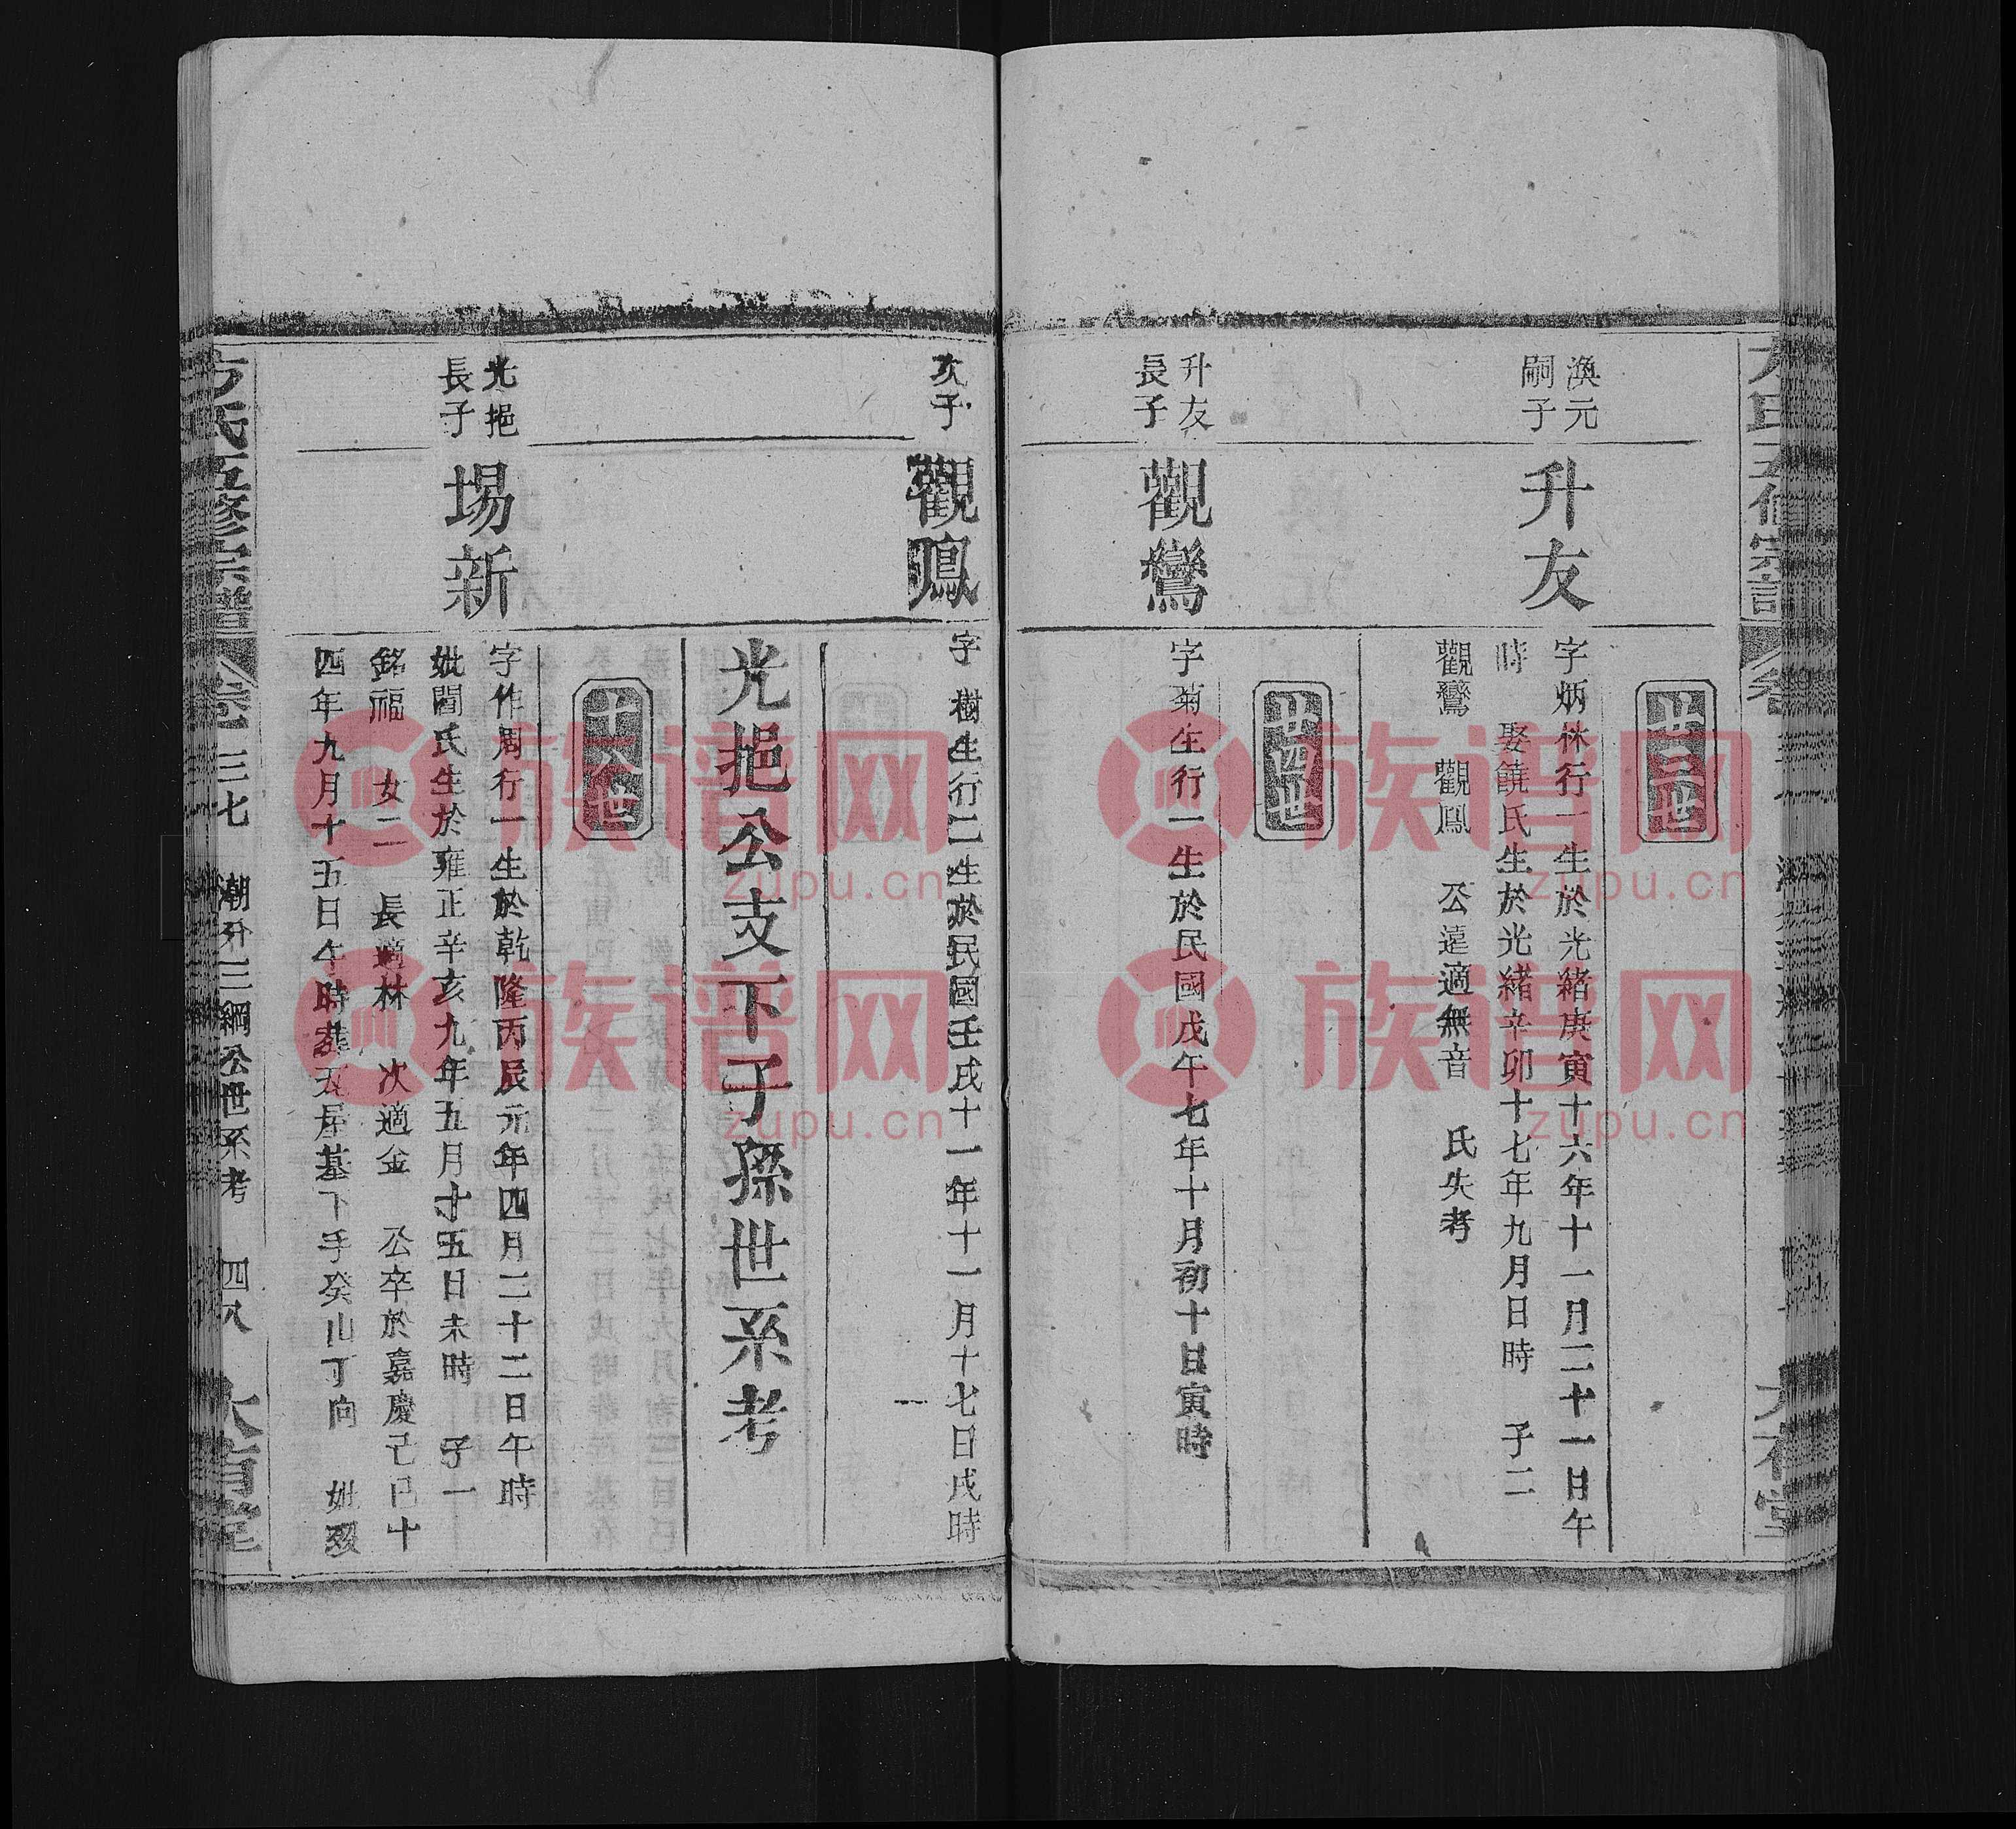 廿三世
渙元
嗣子
升友
字炳林行一生於光緒庚寅十六年十一月二十一日午
時 娶饒氏生於光緒辛卯十七年九月日時 子二
觀鸞 觀鳳 公遠適無音 氏失考
廿四世
升友
長子
觀鸞
字菊生行一生於民國戊午七年十月初十日寅時
次子
觀鳳
字樹生行二生於民國壬戌十一年十一月十七日戌時
光挹公支下子孫世系考
十八世
光挹
長子
場新
字作周行一生於乾隆丙辰元年四月二十二日午時
妣閻氏生於雍正辛亥九年五月十五日未時 子一
銘福 女二 長適林 次適金 公卒於嘉慶己巳十
四年九月十五日午時葬 屋墓下手癸山丁向 妣歿
方氏五修宗譜 卷 三七 潮升三綱公世系考 四八 大有堂
族谱网
zupu.cn
族谱网
zupu.cn
族谱网
zupu.cn
族谱网
zupu.cn